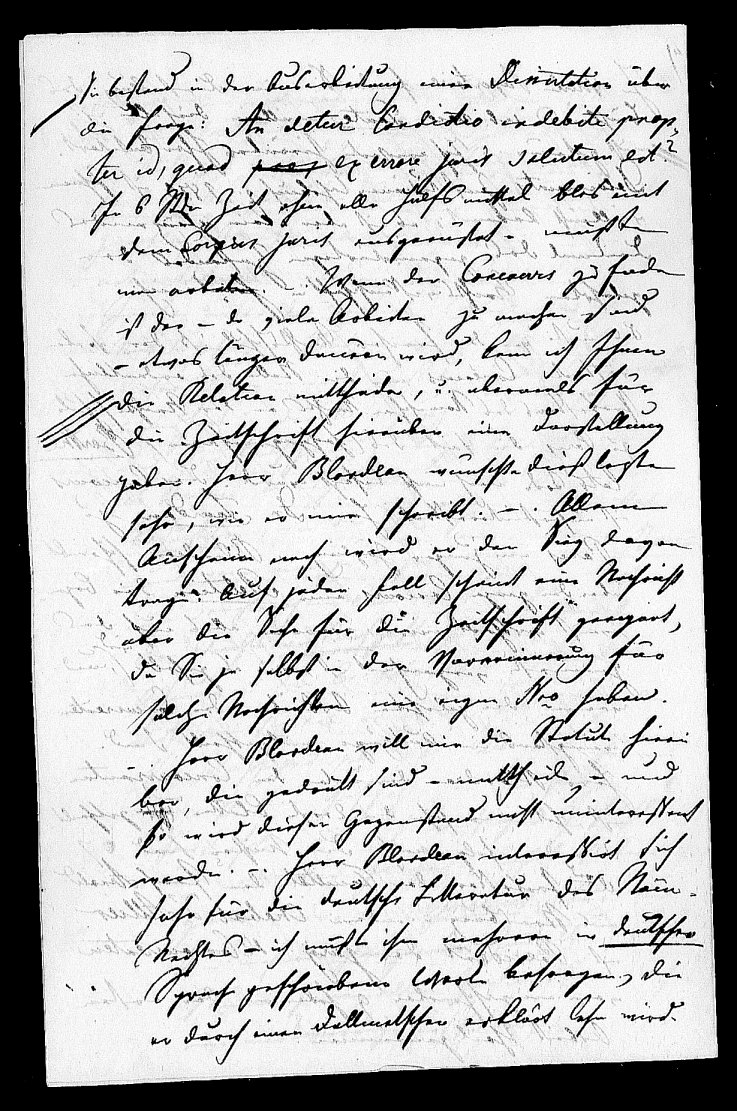 Sie bestand in der Ausarbeitung einer Dissertation über
die Frage: An detur Condictio indebiti prop-
ter id, quod ex errore juris solutum est?
In 6 Stdn Zeit ohne alle Hülfsmittel blos mit
dem Corpus juris ausgerüstet – mußte
man arbeiten. – . Wenn der Concours zu Ende
ist der – da viele Arbeiten zu machen sind
– etwas länger dauern wird, kann ich Ihnen
die Relation mittheilen, u. abermals für
die Zeitschrift hierüber eine Darstellung
geben. Herr Blondeau wünschte dieß letzte
sehr, wie er mir schreibt. – . Allem
Anscheine nach wird er den Sieg davon
tragen. Auf jeden Fall scheint eine Nachricht
über die Sache für die Zeitschrift geeignet,
da Sie ja selbst in der Vorerinnerung für
solche Nachrichten eine eigne Nro haben.
– . Herr Blondeau will mir die Statute hierü-
ber, die gedruckt sind – mittheilen – und
so wird dieser Gegenstand nicht uninteressant
werden. – . Herr Blondeau interessirt sich
sehr für die deutsche Litteratur des Röm.
Rechtes – ich mußte ihm mehrere in deutscher
Sprache geschriebene Werke besorgen, die
er durch einen Dollmetscher erklärt sehn wird.